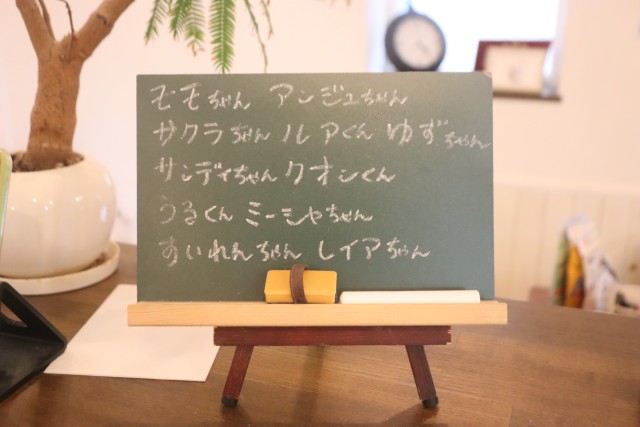 モモちゃん アンジュちゃん
サクラちゃん ルアくん ゆずちゃん
サンディちゃん クオンくん
うるくん ミーシャちゃん
すいれんちゃん レイアちゃん